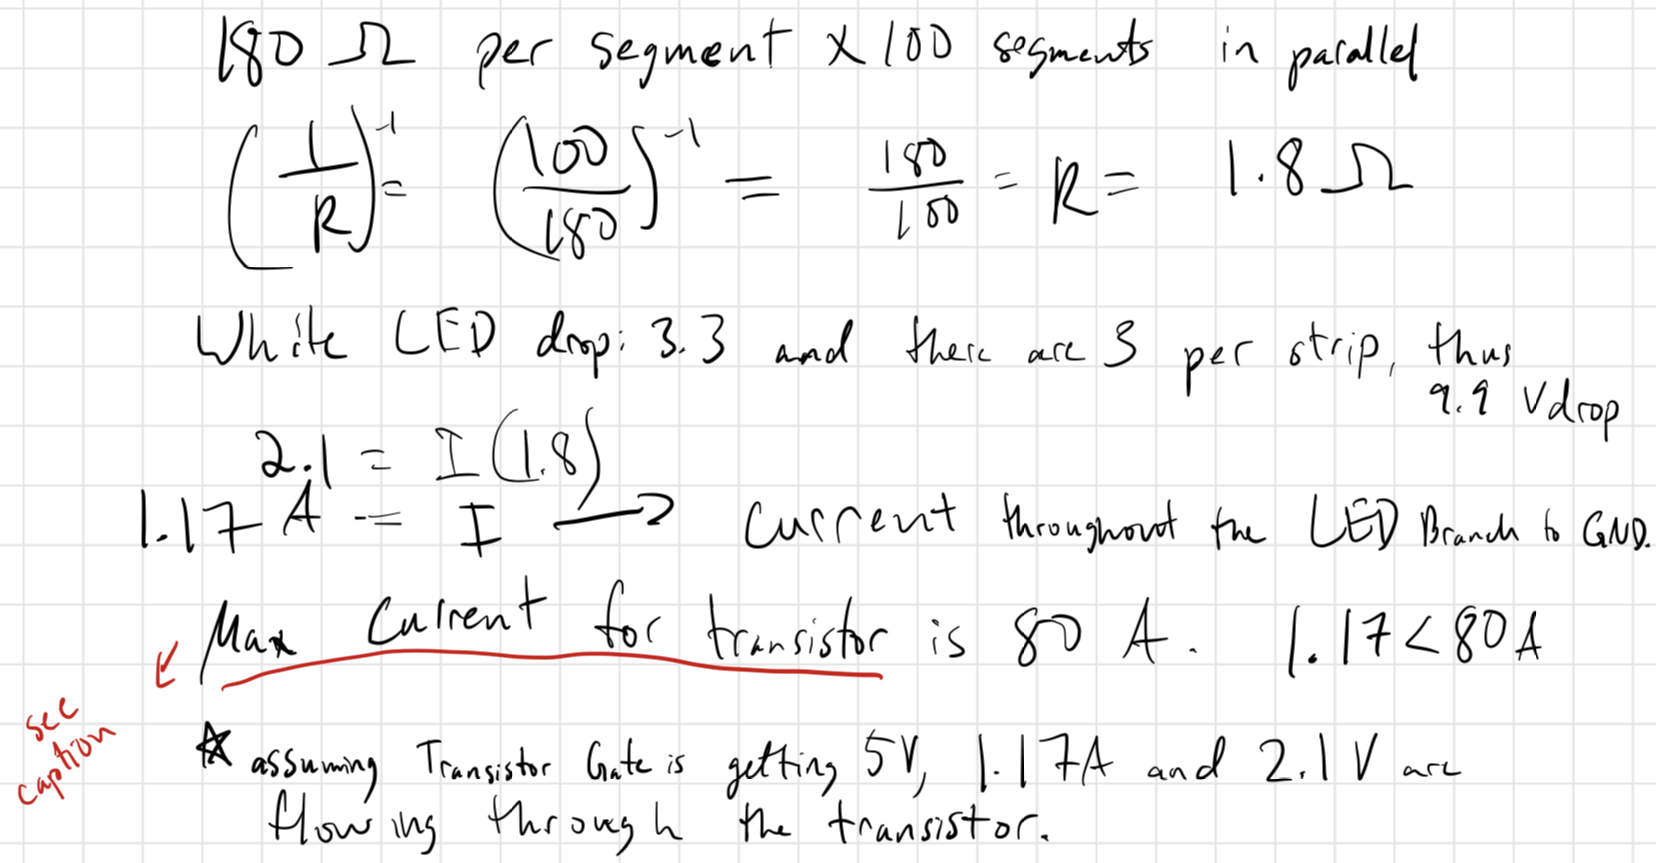 180 Ω per segment × 100 segments in parallel
(1/R)⁻¹ = (100/180)⁻¹ = 180/100 = R = 1.8 Ω
White LED drop: 3.3 and there are 3 per strip, thus
9.9 V drop
2.1 = I(1.8)
1.17 A = I → Current throughout the LED Branch to GND.
Max Current for transistor is 80 A. 1.17 < 80 A
see
caption
☆ assuming Transistor Gate is getting 5V, 1.17A and 2.1 V are
flowing through the transistor.